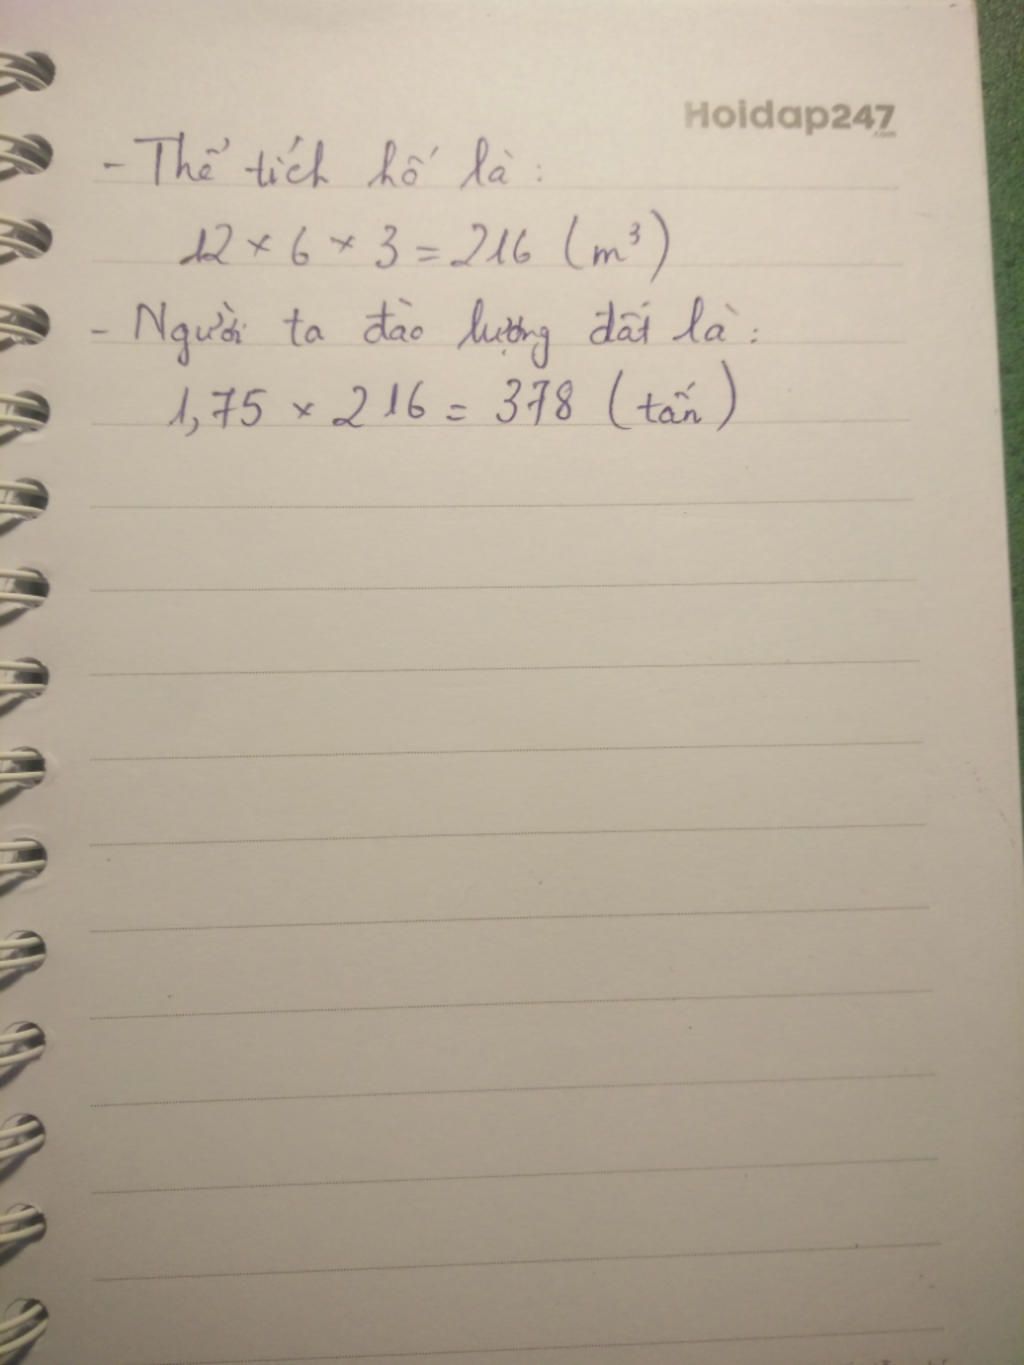 Hoidap247
.com
- Thể tích hố là:
12 × 6 × 3 = 216 (m³)
- Người ta đào lượng đất là:
1,75 × 216 = 378 (tấn)